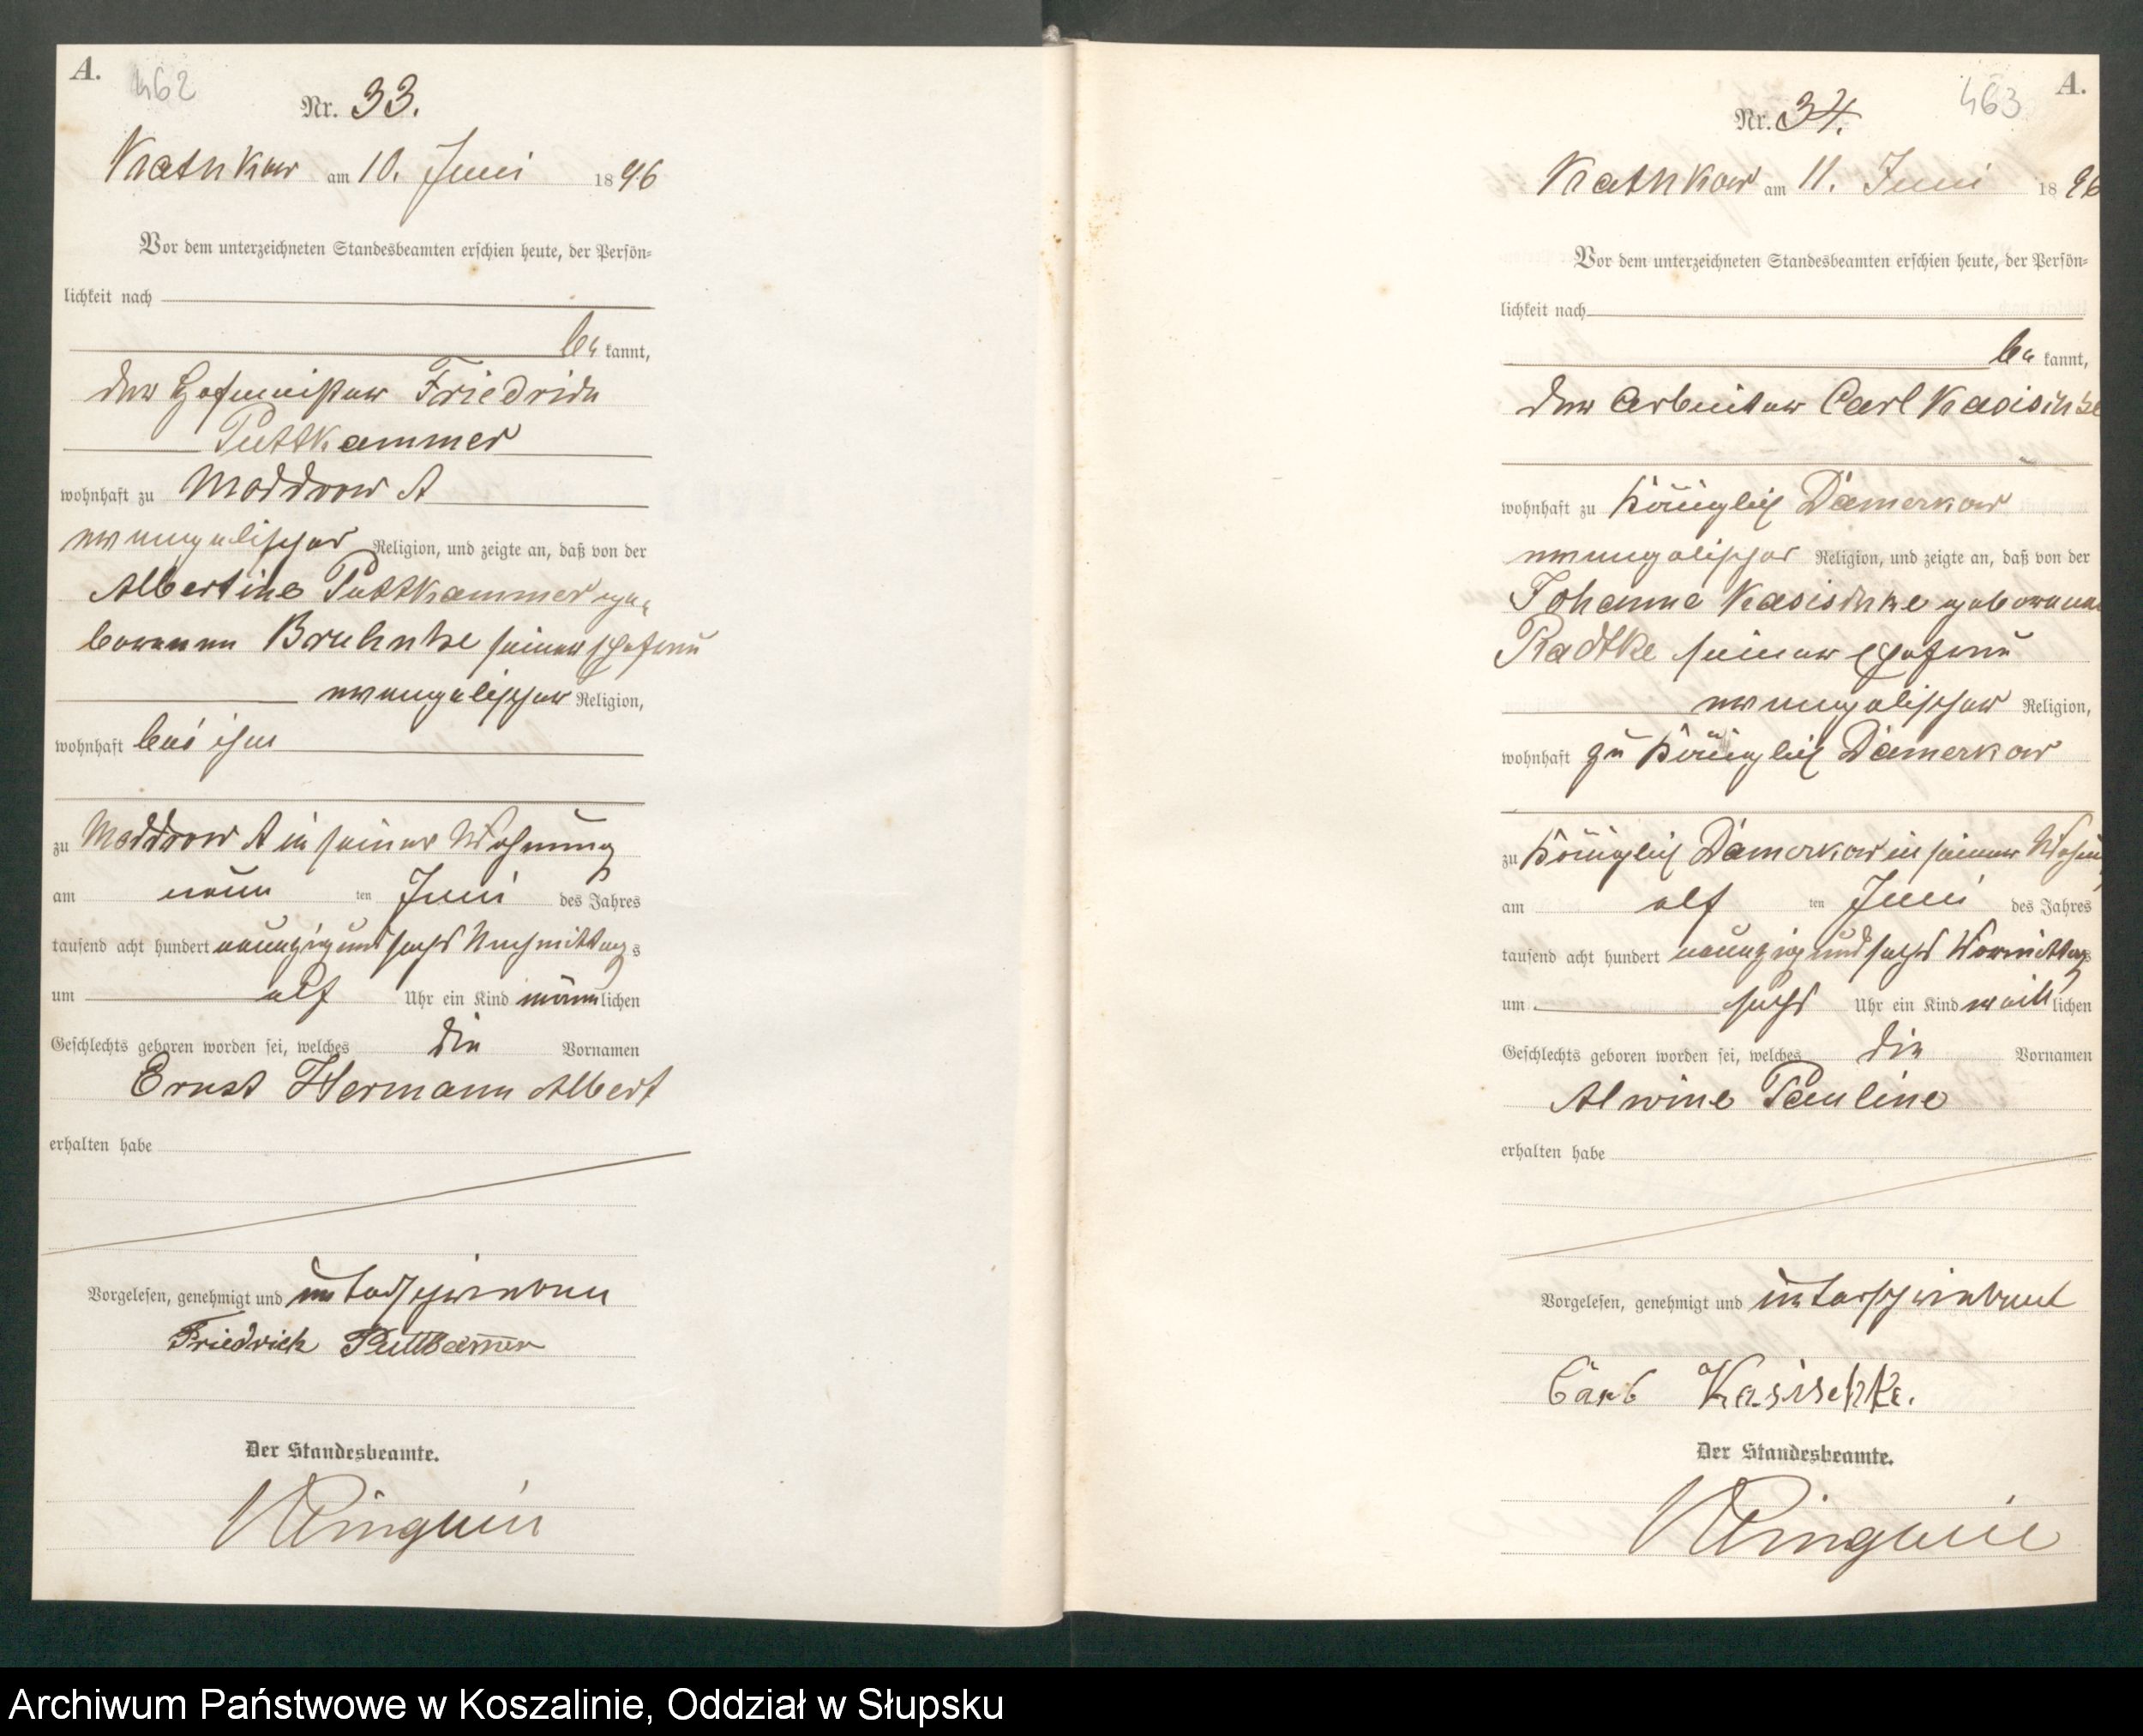 A.
462
Nr. 33.
Kathkow am 10. Juni 1896
Vor dem unterzeichneten Standesbeamten erschien heute, der Persön=
lichkeit nach
be kannt,
der Hofmeister Friedrich
Puttkammer
wohnhaft zu Moddrow A
evangelischer Religion, und zeigte an, daß von der
Albertine Puttkammer ge=
borenen Bruhnke seiner Ehefrau
evangelischer Religion,
wohnhaft bei ihm
zu Moddrow A in seiner Wohnung
am neun ten Juni des Jahres
tausend acht hundert neunzig und sechs Nachmittags
um elf Uhr ein Kind männlichen
Geschlechts geboren worden sei, welches die Vornamen
Ernst Hermann Albert
erhalten habe
Vorgelesen, genehmigt und unterschrieben
Friedrich Puttkamer
Der Standesbeamte.
463
A.
Nr. 34.
Kathkow am 11. Juni 1896
Vor dem unterzeichneten Standesbeamten erschien heute, der Persön=
lichkeit nach
be kannt,
der Arbeiter Carl Kasischke
wohnhaft zu Königlich Damerkow
evangelischer Religion, und zeigte an, daß von der
Johanne Kasischke geborenen
Radtke seiner Ehefrau
evangelischer Religion,
wohnhaft zu Königlich Damerkow
zu Königlich Damerkow in seiner Wohnung
am elf ten Juni des Jahres
tausend acht hundert neunzig und sechs Vormittags
um sechs Uhr ein Kind weiblichen
Geschlechts geboren worden sei, welches die Vornamen
Alwine Pauline
erhalten habe
Vorgelesen, genehmigt und unterschrieben
Carl Kasischke.
Der Standesbeamte.
Archiwum Państwowe w Koszalinie, Oddział w Słupsku